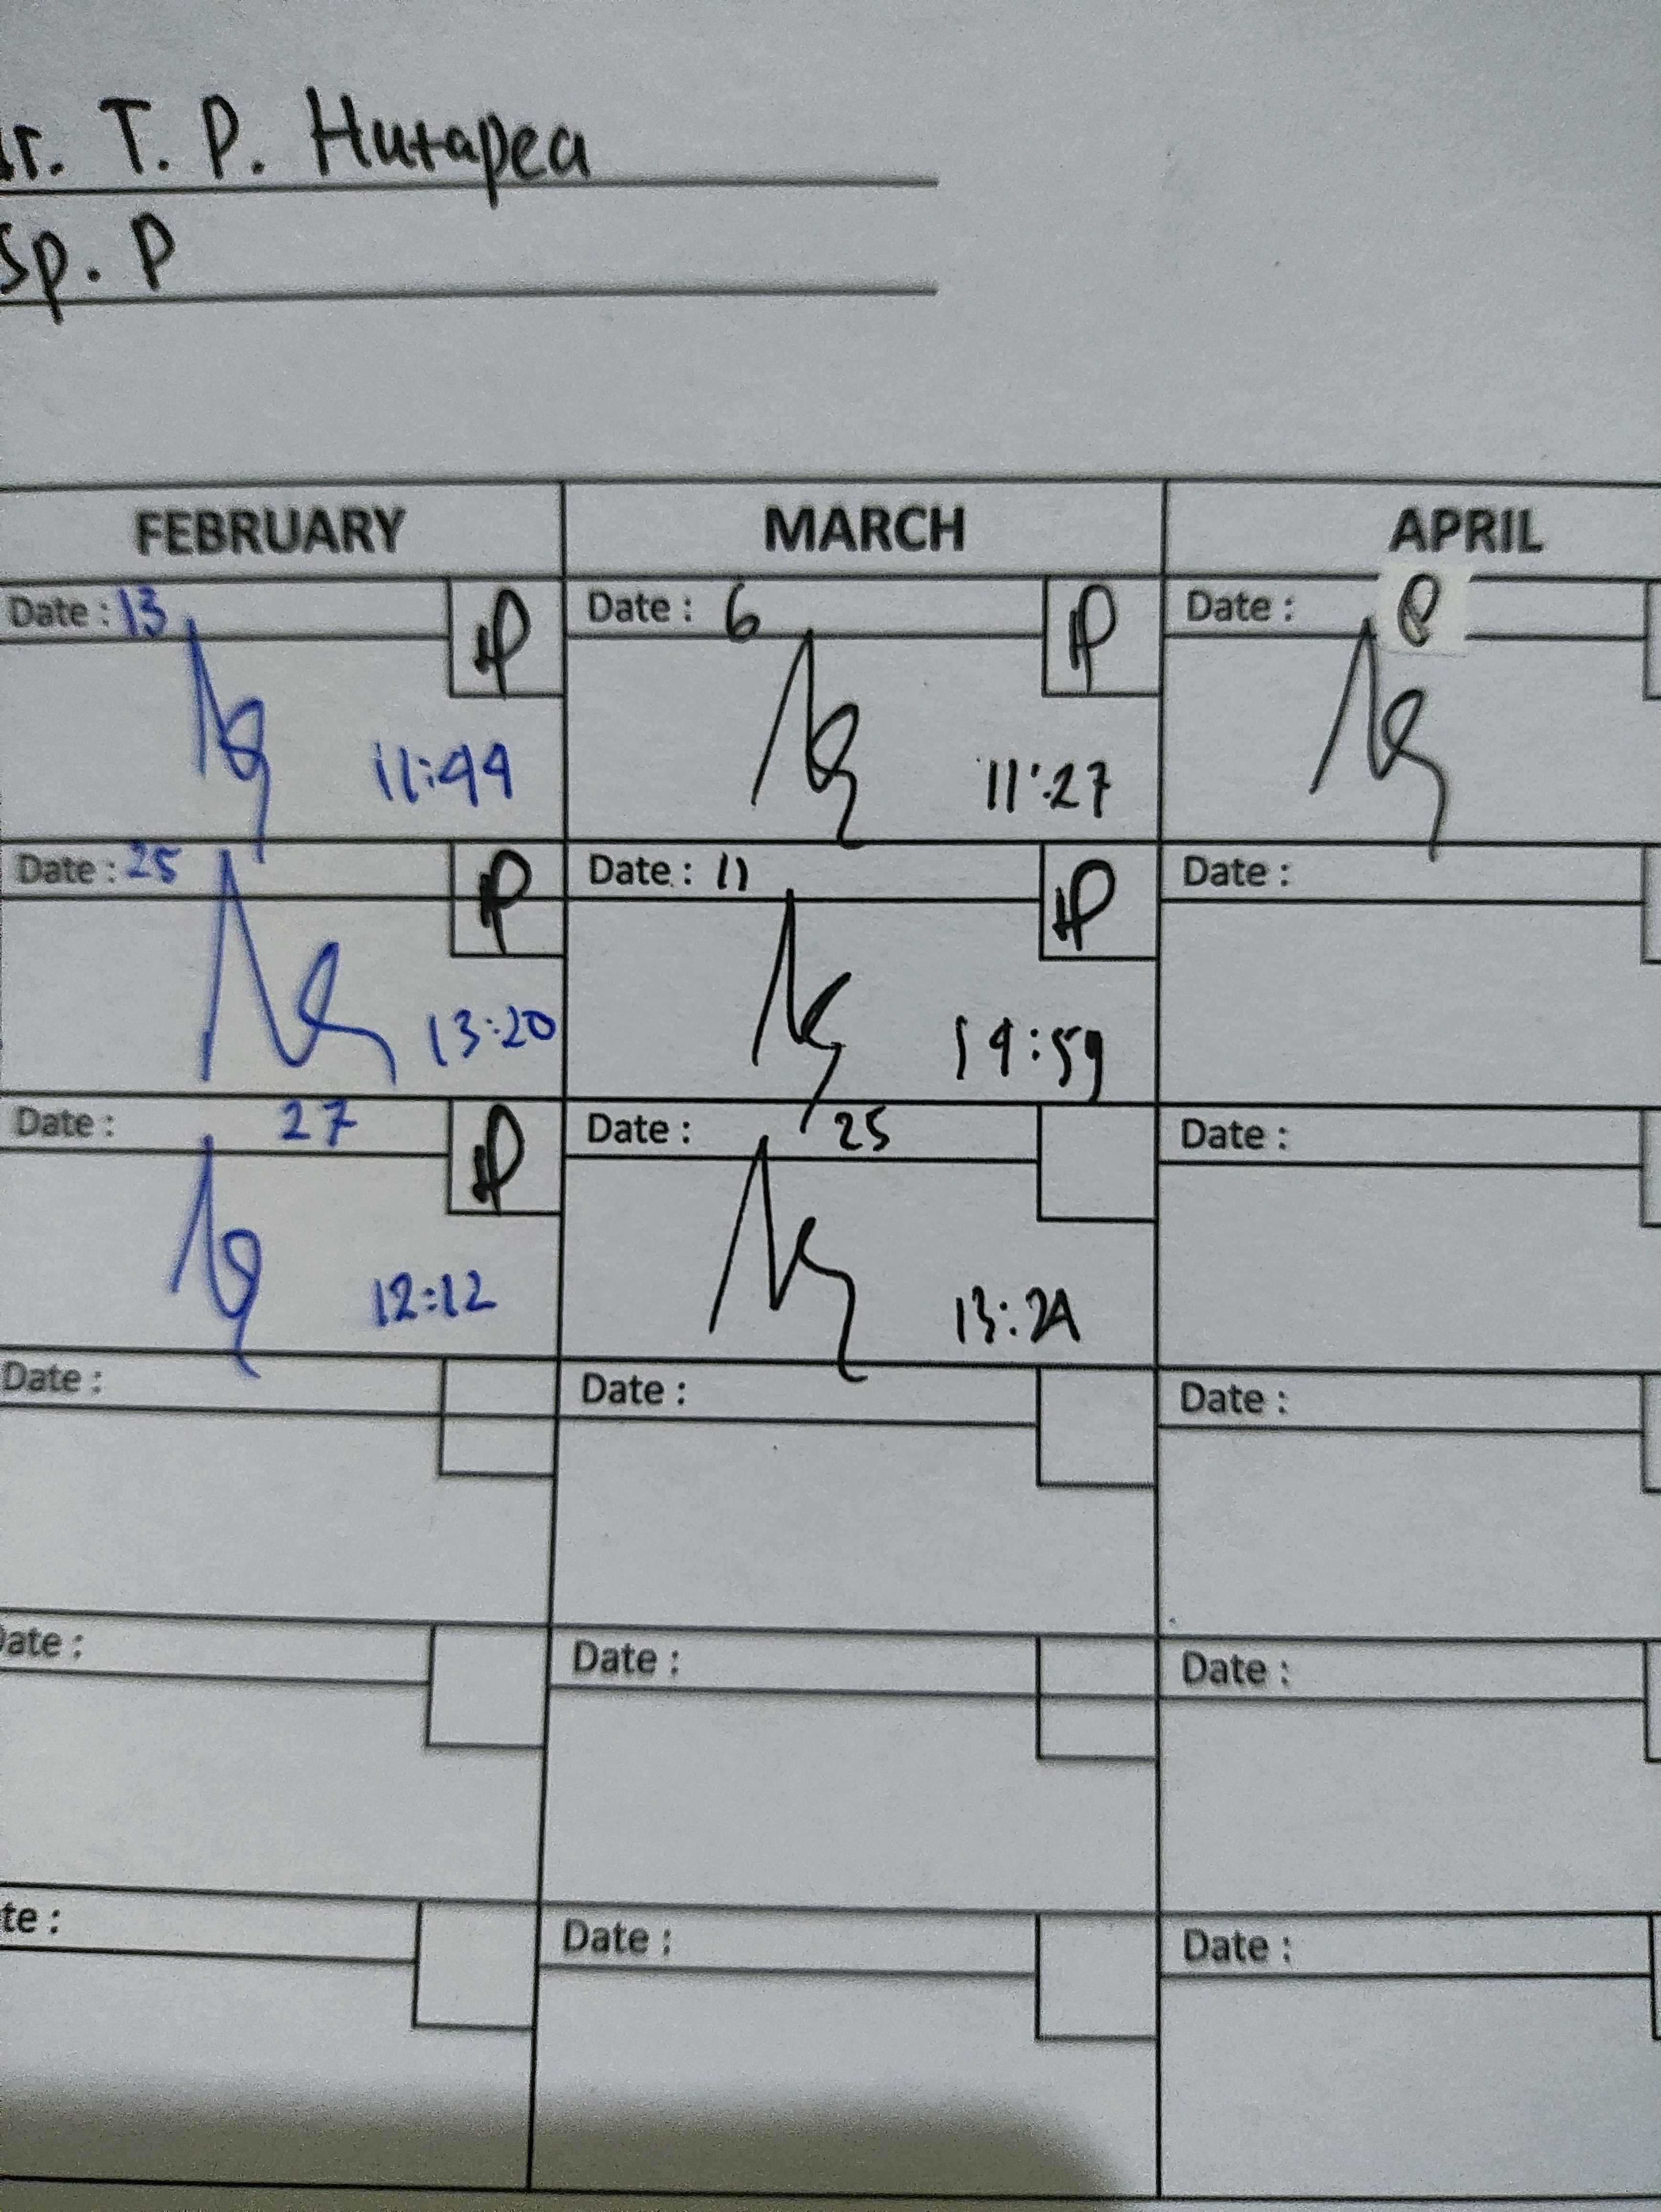 dr. T. P. Hutapea
Sp. P
FEBRUARY MARCH APRIL
Date : 13 P Date : 6 P Date :
11:44 11:27
Date : 25 P Date : 11 P Date :
13:20 14:59
Date : 27 P Date : 25 Date :
12:12 13:24
Date : Date : Date :
Date : Date : Date :
te : Date : Date :